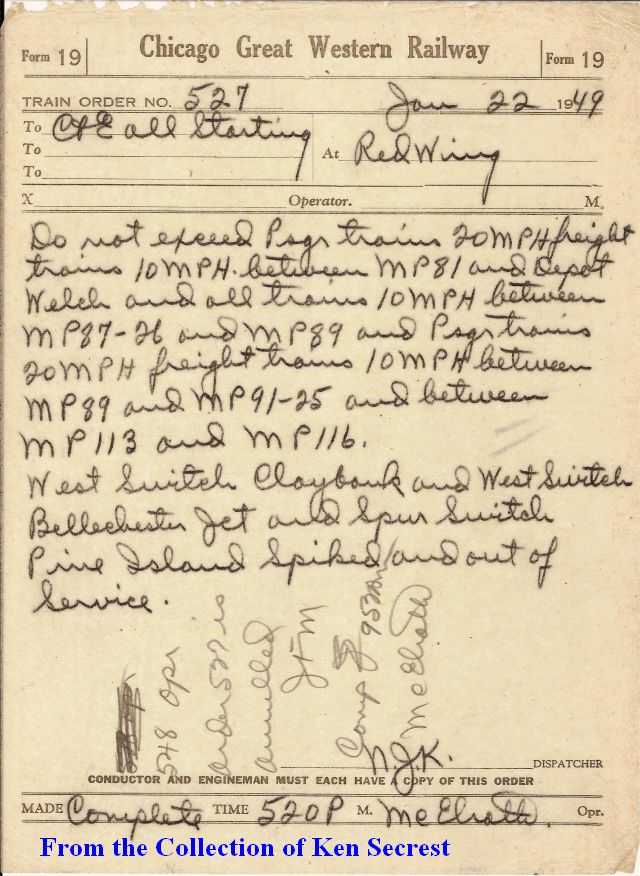 Form 19 Chicago Great Western Railway Form 19
TRAIN ORDER NO. 527 Jan 22 1949
To C&E all Starting
To At Red Wing
To
X Operator. M.
Do not exceed Psgr trains 20MPH freight
trains 10MPH. between MP81 and Depot
Welch and all trains 10MPH between
MP87-26 and MP89 and Psgr trains
20MPH freight trains 10MPH between
MP89 and MP91-25 and between
MP113 and MP116.
West Switch Claybank and West Switch
Bellechester Jct and Spur Switch
Pine Island Spiked and out of
Service.
548 opr
order 527 is
annulled
JFM
Comp 953am
McElrath
N.J.K. DISPATCHER
CONDUCTOR AND ENGINEMAN MUST EACH HAVE A COPY OF THIS ORDER
MADE Complete TIME 520P M. McElrath. Opr.
From the Collection of Ken Secrest